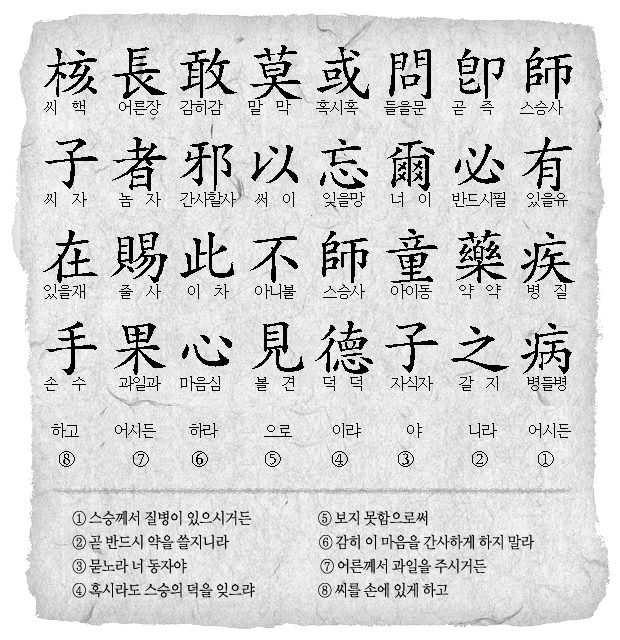 師 스승사 有 있을유 疾 병 질 病 병들병 어시든 ①
卽 곧 즉 必 반드시필 藥 약 약 之 갈 지 니라 ②
問 들을문 爾 너 이 童 아이동 子 자식자 야 ③
或 혹시혹 忘 잊을망 師 스승사 德 덕 덕 이랴 ④
莫 말 막 以 써 이 不 아니불 見 볼 견 으로 ⑤
敢 감히감 邪 간사할사 此 이 차 心 마음심 하라 ⑥
長 어른장 者 놈 자 賜 줄 사 果 과일과 어시든 ⑦
核 씨 핵 子 씨 자 在 있을재 手 손 수 하고 ⑧
① 스승께서 질병이 있으시거든
② 곧 반드시 약을 쓸지니라
③ 묻노라 너 동자야
④ 혹시라도 스승의 덕을 잊으랴
⑤ 보지 못함으로써
⑥ 감히 이 마음을 간사하게 하지 말라
⑦ 어른께서 과일을 주시거든
⑧ 씨를 손에 있게 하고